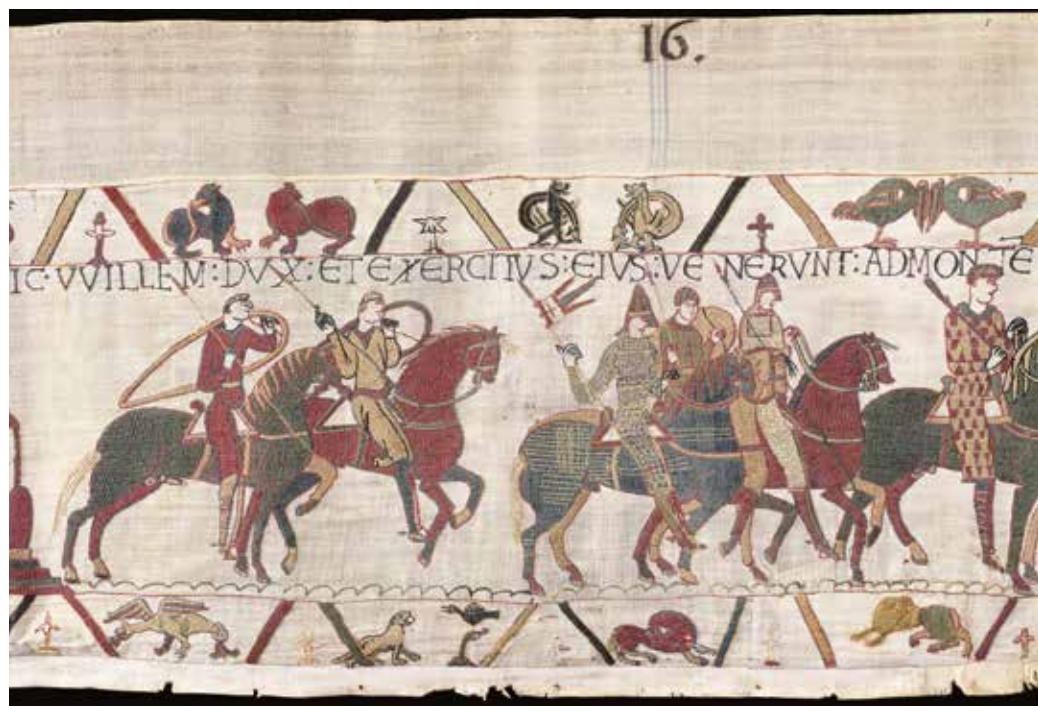 16.
IC·VVILLEM:DVX:ET EXERCITVS:EIVS:VE NERVNT:AD MONTE